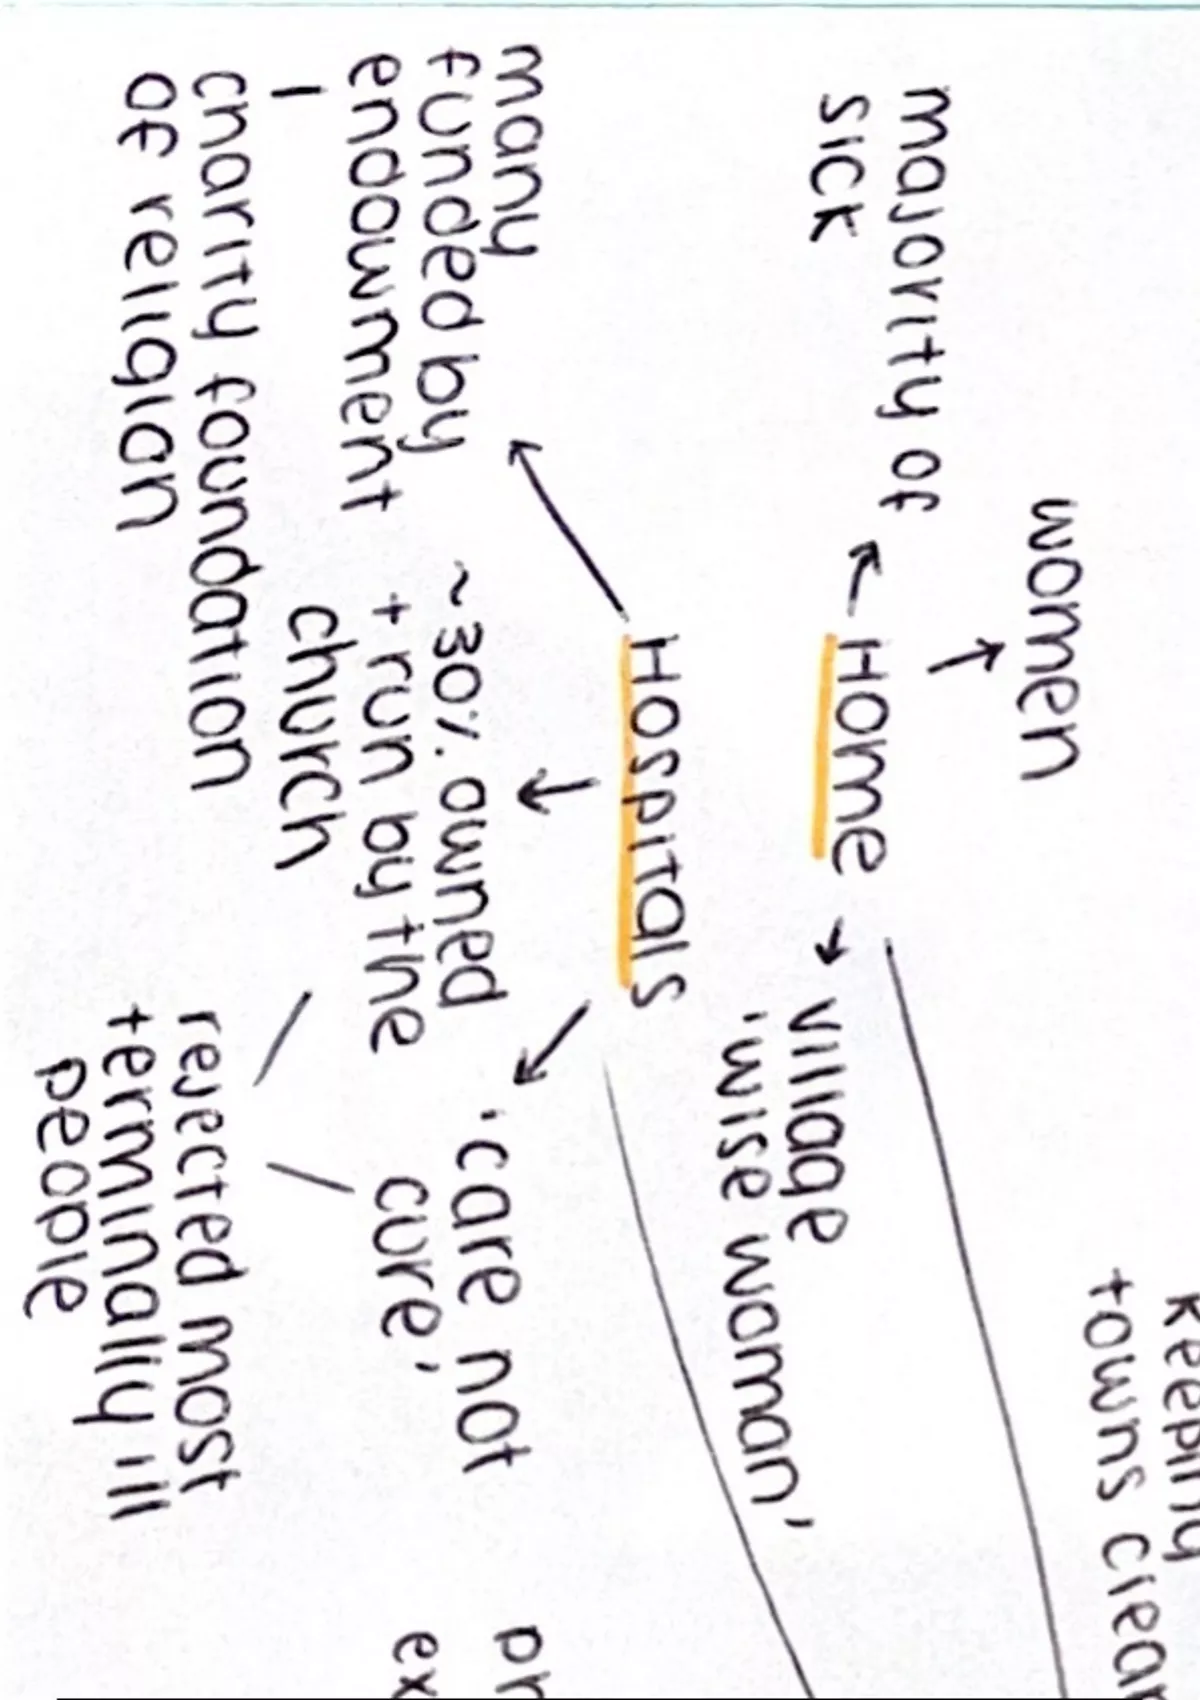 women
majority of
sick
Home
village
'wise woman'
keeping
towns clean
Hospitals
many
funded by
endowment
charity foundation
of religion
~30% owned
+ run by the
church
'care not
cure'
rejected most
terminally ill
people